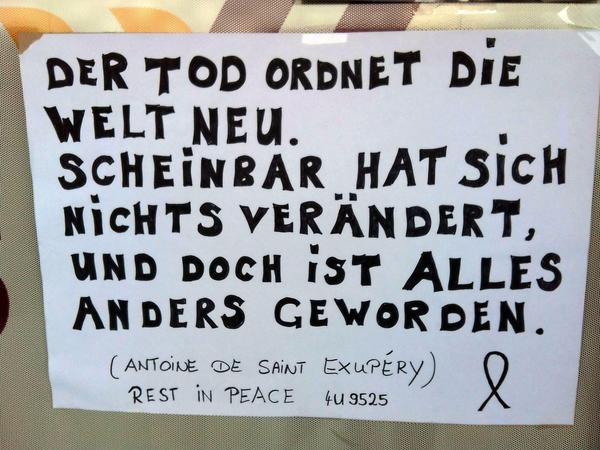 DER TOD ORDNET DIE
WELT NEU.
SCHEINBAR HAT SICH
NICHTS VERÄNDERT,
UND DOCH IST ALLES
ANDERS GEWORDEN.
(ANTOINE DE SAINT EXUPÉRY)
REST IN PEACE 4U9525